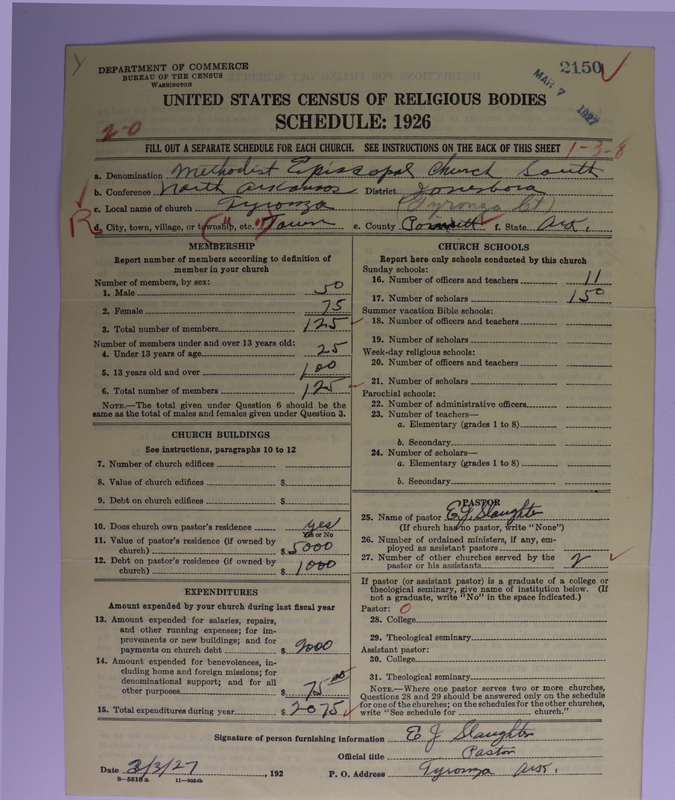 Y
DEPARTMENT OF COMMERCE
BUREAU OF THE CENSUS
WASHINGTON
2150
MAR 7 1927
UNITED STATES CENSUS OF RELIGIOUS BODIES
SCHEDULE: 1926
2-0
FILL OUT A SEPARATE SCHEDULE FOR EACH CHURCH. SEE INSTRUCTIONS ON THE BACK OF THIS SHEET
1-3-8
a. Denomination Methodist Episcopal Church South
b. Conference North Arkansas District Jonesboro
c. Local name of church Tyronza (Tyronza Ct)
R
d. City, town, village, or township, etc. Town e. County Poinsett f. State Ark.
MEMBERSHIP
Report number of members according to definition of
member in your church
Number of members, by sex:
1. Male 50
2. Female 75
3. Total number of members 125
Number of members under and over 13 years old:
4. Under 13 years of age 25
5. 13 years old and over 100
6. Total number of members 125
NOTE.—The total given under Question 6 should be the
same as the total of males and females given under Question 3.
CHURCH BUILDINGS
See instructions, paragraphs 10 to 12
7. Number of church edifices
8. Value of church edifices $
9. Debt on church edifices $
10. Does church own pastor's residence yes
Yes or No
11. Value of pastor's residence (if owned by
church) $ 5000
12. Debt on pastor's residence (if owned by
church) $ 1000
EXPENDITURES
Amount expended by your church during last fiscal year
13. Amount expended for salaries, repairs,
and other running expenses; for im-
provements or new buildings; and for
payments on church debt $ 2000
14. Amount expended for benevolences, in-
cluding home and foreign missions; for
denominational support; and for all
other purposes $ 75.00
15. Total expenditures during year $ 2075
CHURCH SCHOOLS
Report here only schools conducted by this church
Sunday schools:
16. Number of officers and teachers 11
17. Number of scholars 150
Summer vacation Bible schools:
18. Number of officers and teachers
19. Number of scholars
Week-day religious schools:
20. Number of officers and teachers
21. Number of scholars
Parochial schools:
22. Number of administrative officers
23. Number of teachers—
a. Elementary (grades 1 to 8)
b. Secondary
24. Number of scholars—
a. Elementary (grades 1 to 8)
b. Secondary
PASTOR
25. Name of pastor E J Slaughter
(If church has no pastor, write "None")
26. Number of ordained ministers, if any, em-
ployed as assistant pastors
27. Number of other churches served by the
pastor or his assistants 2
If pastor (or assistant pastor) is a graduate of a college or
theological seminary, give name of institution below. (If
not a graduate, write "No" in the space indicated.)
Pastor: 0
28. College
29. Theological seminary
Assistant pastor:
30. College
31. Theological seminary
NOTE.—Where one pastor serves two or more churches,
Questions 28 and 29 should be answered only on the schedule
for one of the churches; on the schedules for the other churches,
write "See schedule for church."
Signature of person furnishing information E J Slaughter
Official title Pastor
Date 3/3/27, 192 P. O. Address Tyronza Ark.